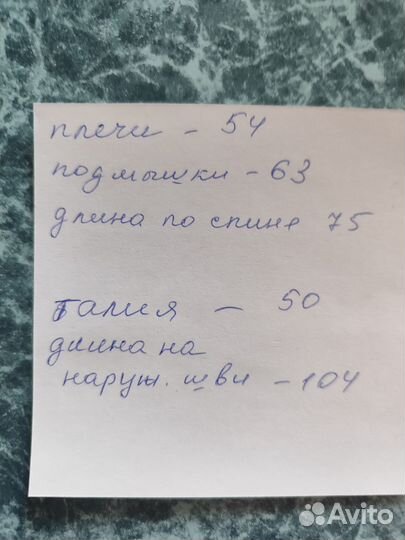 плечи - 54
подмышки - 63
длина по спине 75
талия - 50
длина на
наруж. шви - 104
Avito